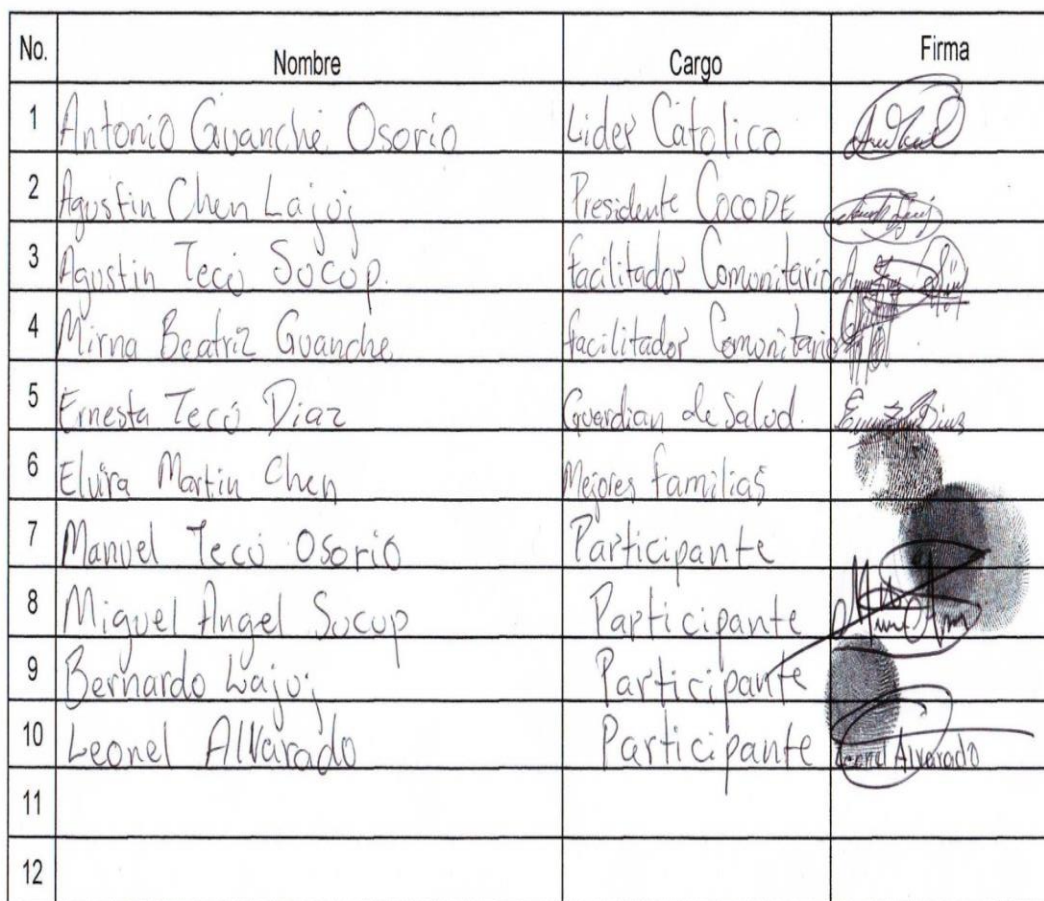 No. Nombre Cargo Firma
1 Antonio Guanche Osorio Lider Catolico
2 Agustin Chen Lajuj Presidente COCODE
3 Agustin Tecú Sucup. facilitador Comunitario
4 Mirna Beatriz Guanche facilitador Comunitario
5 Ernesta Tecú Diaz Guardian de Salud.
6 Elvira Martin Chen Mejores familias
7 Manuel Tecú Osorio Participante
8 Miguel Angel Sucup Participante
9 Bernardo Lajuj Participante
10 Leonel Alvarado Participante Leonel Alvarado
11
12